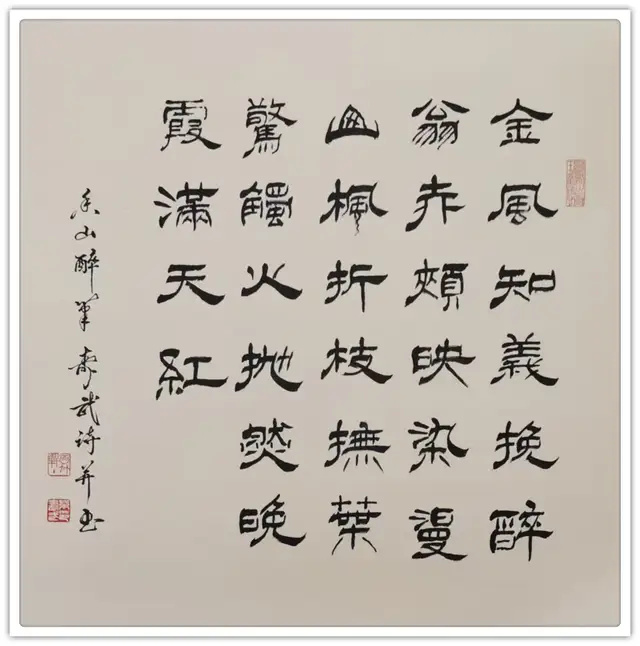 金風知義挽醉
翁赤頰映染漫
山楓折枝撫葉
驚觸火拋然晚
霞滿天紅
香山醉筆 武詩并书